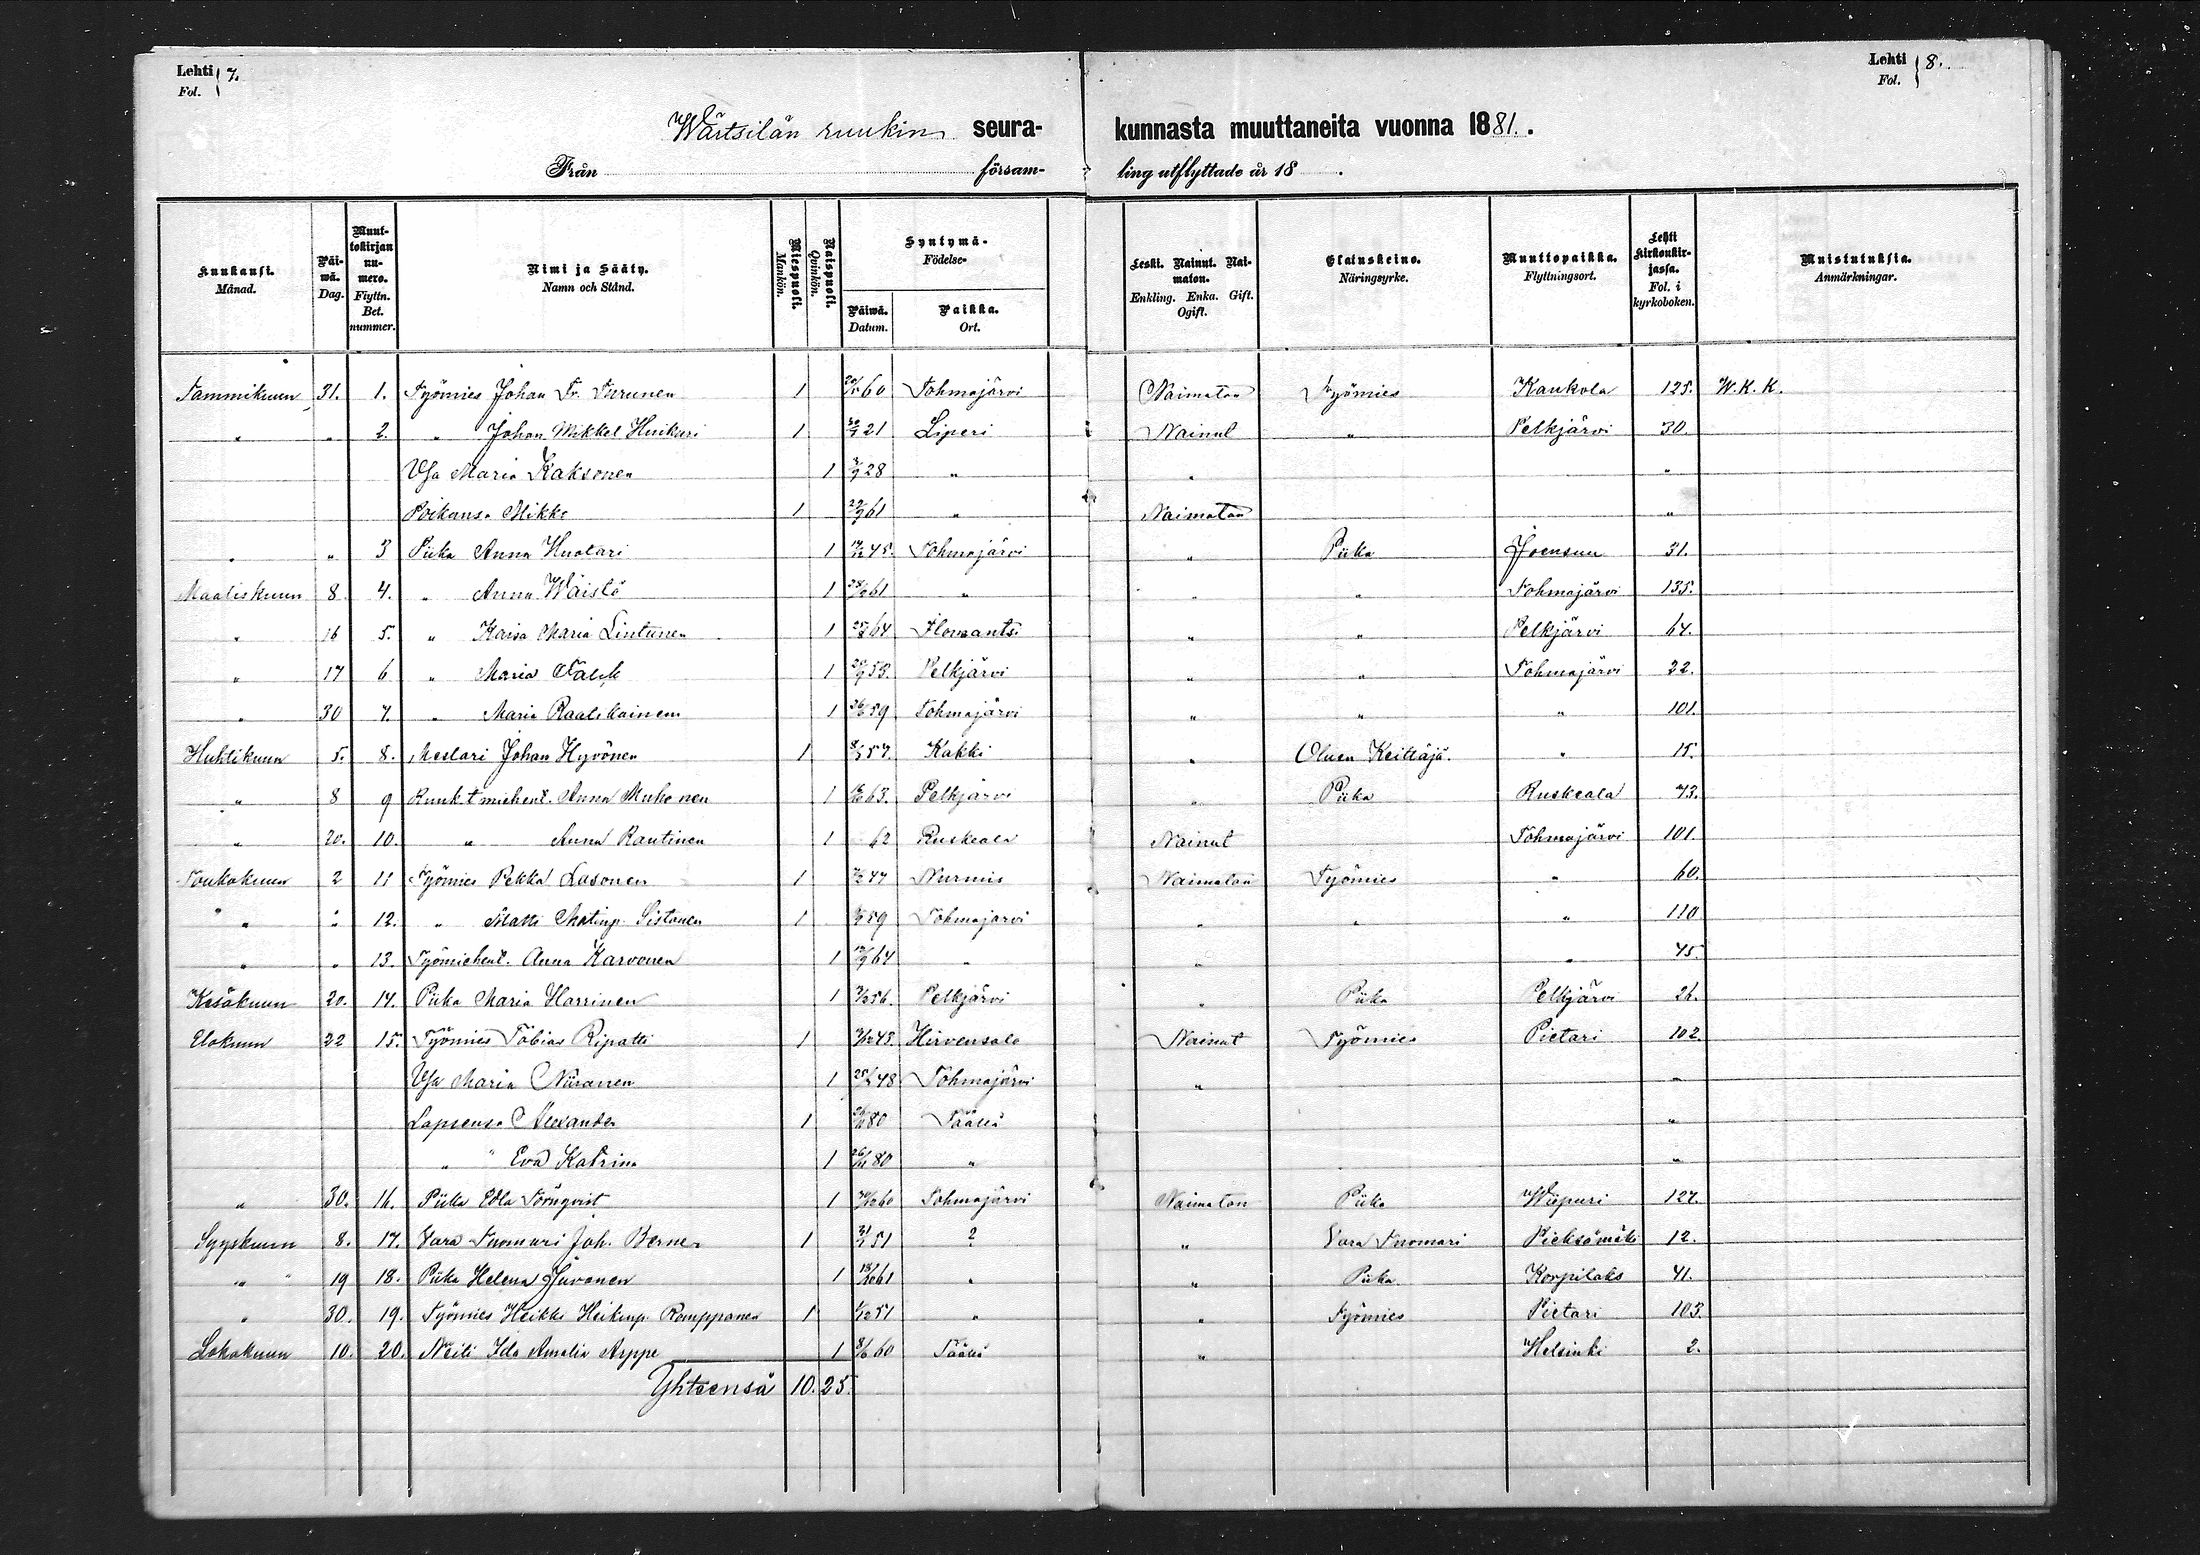 Lehti } 7.
Fol.
Lehti } 8.
Fol.
Wärtsilän ruukin seura- kunnasta muuttaneita vuonna 1881.
Från försam- ling utflyttade år 18 .
Kuukausi. Månad. Päi-wä. Dag. Muut-tokirjan nu-mero. Flyttn. Bet. nummer. Nimi ja Sääty. Namn och Stånd. Miespuoli. Mankön. Naispuoli. Qvinkön. Syntymä- Födelse- Päiwä. Datum. Paikka. Ort. Leski. Nainut. Nai-maton. Enkling. Enka. Gift. Ogift. Elatuskeino. Näringsyrke. Muuttopaikka. Flyttningsort. Lehti kirkonkir-jassa. Fol. i kyrkoboken. Muistutuksia. Anmärkningar.
Tammikuun 31. 1. Työmies Johan Fr. Turunen 1 60 Tohmajärvi Naimaton Työmies Kaukola 125. W. K. K.
" " 2. " Johan Mikkel Huikuri 1 21 Liperi Nainut " Pelkjärvi 30.
Vsa Maria Kaksonen 1 28 " " "
Poikansa Mikko 1 61 " Naimaton "
" " 3 Piika Anna Huotari 1 45. Tohmajärvi " Piika Joensuu 31.
Maaliskuun 8. 4. " Anna Wäistö 1 61 " " " Tohmajärvi 135.
" 16 5. " Kaisa Maria Lintunen 1 64 Ilomantsi " " Pelkjärvi 64.
" 17 6 " Maria Falck 1 53. Pelkjärvi " " Tohmajärvi 22.
" 30 7. " Maria Raatikainen 1 59 Tohmajärvi " " " 101.
Huhtikuun 5. 8. Mestari Johan Hyvönen 1 57. Kakki " Oluen Keittäjä. " 15.
" 8 9 Ruuk.t miehent. Anna Muhonen 1 63. Pelkjärvi " Piika Ruskeala 73.
" 20. 10. " Anna Rautinen 1 62 Ruskeala Nainut Tohmajärvi 101.
Toukokuun 2 11 Työmies Pekka Lasonen 1 47 Nurmis Naimaton Työmies " 60.
" " 12. " Matti Matinp. Sistonen 1 59 Tohmajärvi " " " 110
" " 13. Työmiehent. Anna Karvonen 1 64 " " " 45.
Kesäkuun 20. 14. Piika Maria Harrinen 1 56. Pelkjärvi " Piika Pelkjärvi 26.
Elokuun 22 15. Työmies Tobias Ripatti 1 45. Hirvensalo Nainut Työmies Pietari 102.
Vsa Maria Niiranen 1 48 Tohmajärvi " "
Lapsensa Alexander 1 80 Täällä "
" " Eva Katrina 1 26/11 80 " "
" 30. 16. Piika Edla Törnqvist 1 60 Tohmajärvi Naimaton Piika Wiipuri 127.
Syyskuun 8. 17. Vara Tuomari Joh. Berner 1 51 ? " Vara Tuomari Pieksämäki 12.
" " 19 18. Piika Helena Juvonen 1 61 " " Piika Korpilaks 41.
" 30. 19. Työmies Heikki Heikinp. Romppanen 1 51 " " Työmies Pietari 103.
Lokakuun 10. 20. Neiti Ida Amalia Arppe 1 60 Täällä " Helsinki 2.
Yhteensä 10. 25.